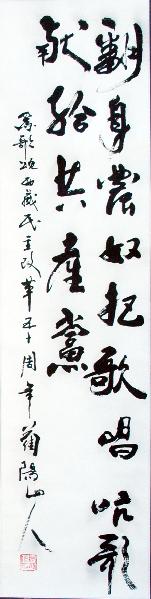 翻身農奴把歌唱頌歌
献給共產黨
為歌頌西藏民主改革五十周年 陽山人